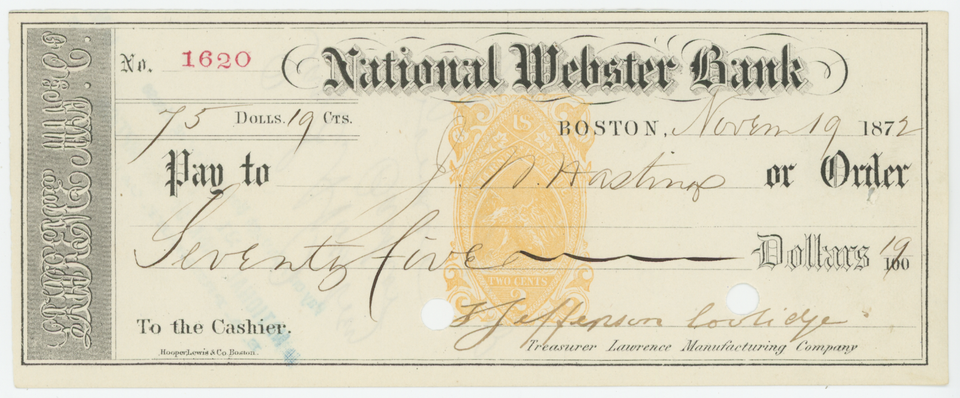 No. 1620
National Webster Bank
75 DOLLS. 19 CTS.
BOSTON, Novem 19 1872
Pay to J. W. Hastings or Order
Seventy five Dollars 19/100
U.S.
TWO CENTS
To the Cashier.
T Jefferson Coolidge
Treasurer Lawrence Manufacturing Company
Hooper, Lewis & Co. Boston.